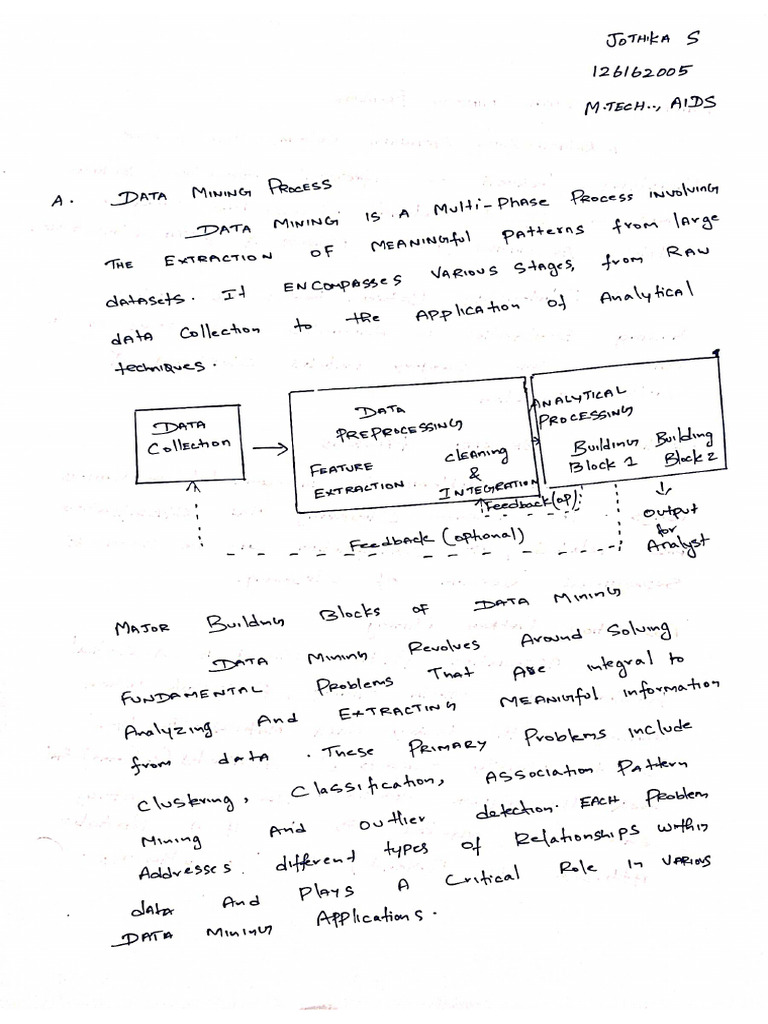 JOTHIKA S
126162005
M.TECH.., AIDS
A. DATA MINING PROCESS
DATA MINING IS A Multi-Phase Process INVOLVING
THE EXTRACTION OF MEANINGful patterns from large
datasets. It ENCOMPASSES VARIOUS stages, from RAW
data Collection to the Application of Analytical
techniques.
DATA
Collection
DATA
PREPROCESSING
FEATURE
EXTRACTION
Cleaning
&
INTEGRATION
ANALYTICAL
PROCESSING
Building
Block 1
Building
Block 2
Feedback (op)
Feedback (optional)
Output
for
Analyst
MAJOR Building Blocks of DATA MINING
DATA MINING Revolves Around Solving
FUNDAMENTAL Problems THAT Are integral to
Analyzing And EXTRACTING MEANINGful information
from data. These PRIMARY Problems include
Clustering, Classification, ASSOCIATION PATTERN
MINING And outlier detection. EACH Problem
Addresses different types of Relationships within
data And Plays A Critical Role IN VARIOUS
DATA MINING Applications.